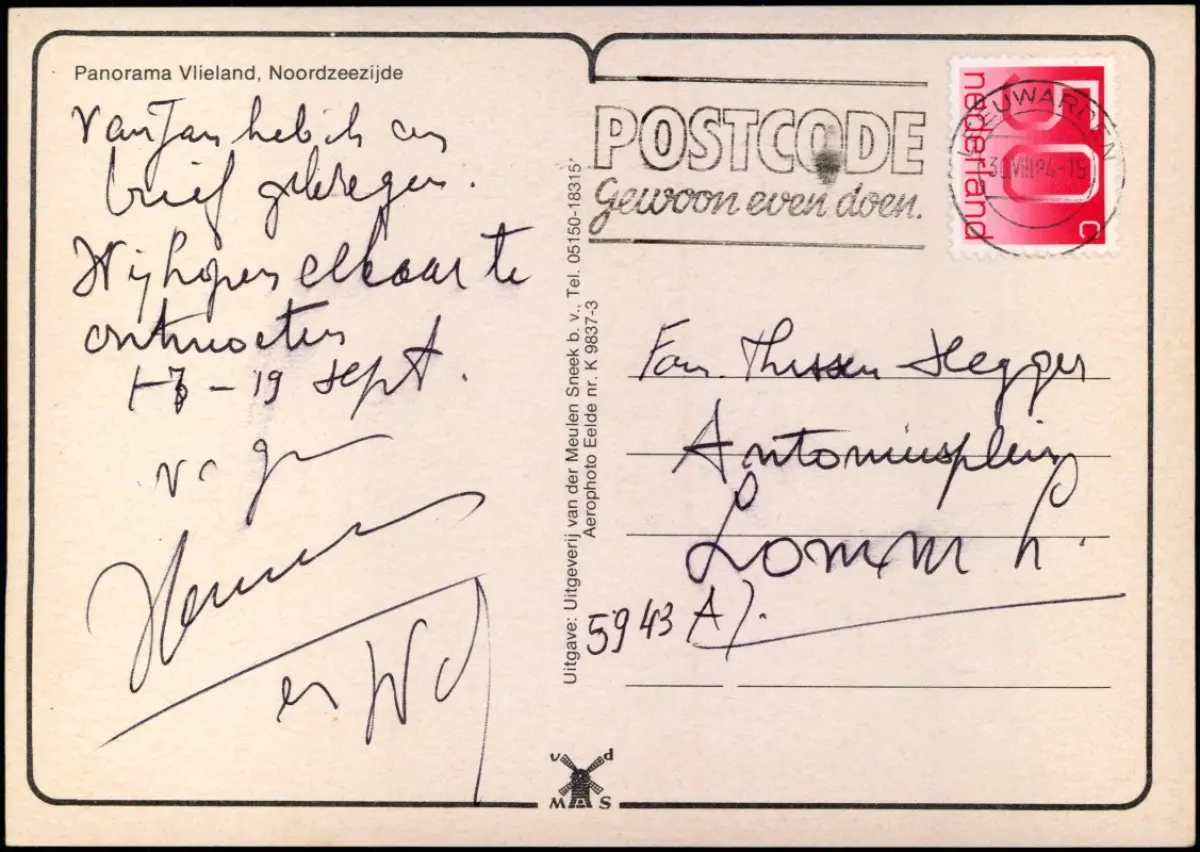 Panorama Vlieland, Noordzeezijde
Van Jan heb ik een
brief gekregen.
Wij hopen elkaar te
ontmoeten
17 - 19 sept.
v. gr.
en
Uitgave: Uitgeverij van der Meulen Sneek b. v., Tel. 05150-18315*
Aerophoto Eelde nr. K 9837-3
POSTCODE
Gewoon even doen.
LEEUWARDEN
30.VIII.84-15
nederland
50
c
Fam. Thissen Hegger
Antoniusplein
Lomm L.
5943 AJ.
v d
M A S